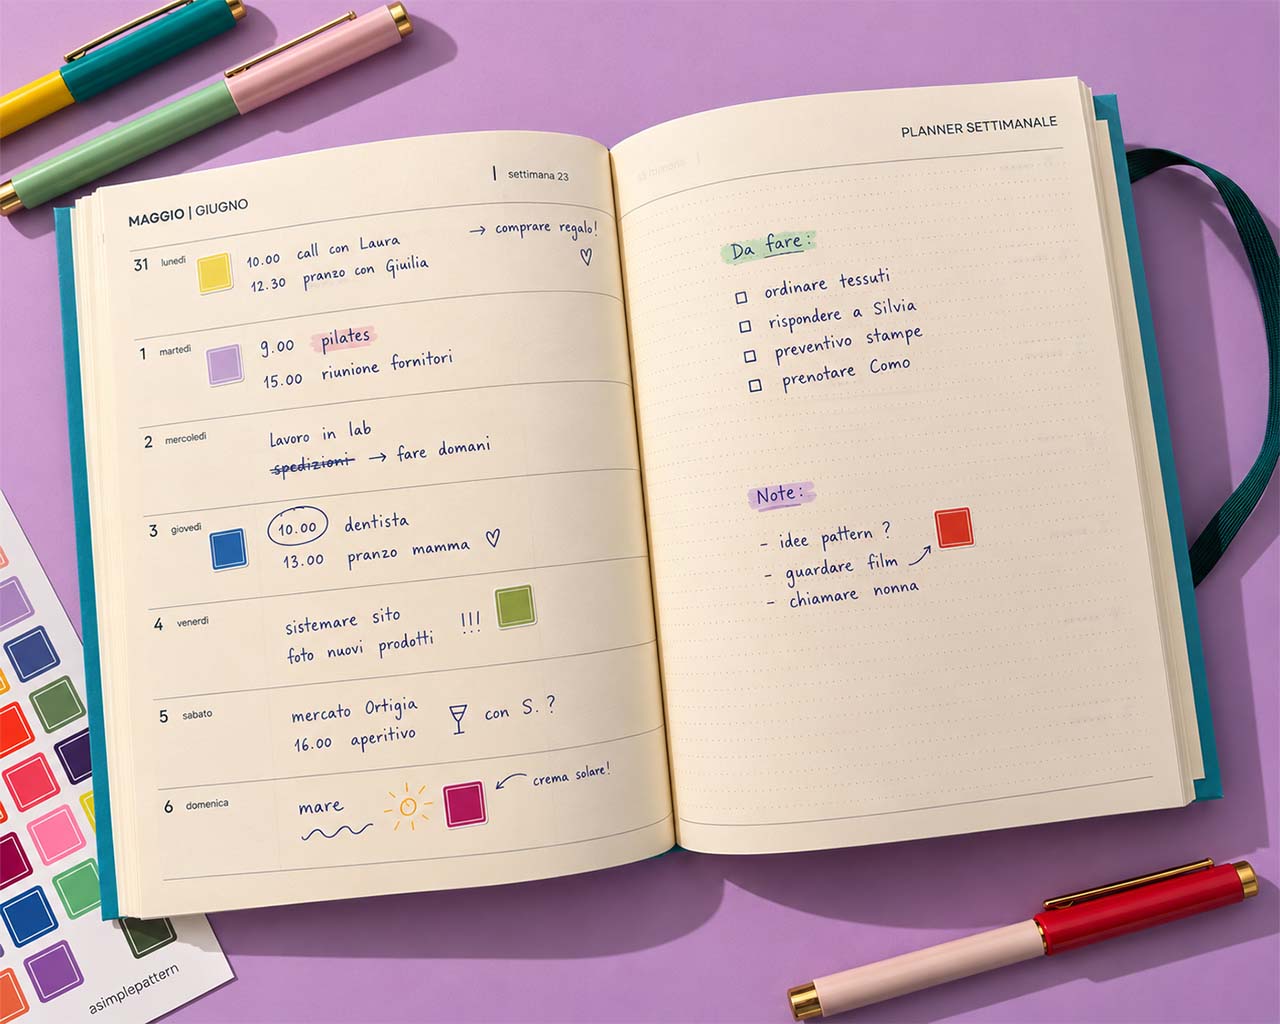 MAGGIO | GIUGNO
| settimana 23
31 lunedì
10.00 call con Laura
12.30 pranzo con Giuilia
→ comprare regalo!
1 martedì
9.00 pilates
15.00 riunione fornitori
2 mercoledì
Lavoro in lab
spedizioni → fare domani
3 giovedì
10.00 dentista
13.00 pranzo mamma
4 venerdì
sistemare sito
foto nuovi prodotti !!!
5 sabato
mercato Ortigia
16.00 aperitivo
con S. ?
6 domenica
mare
crema solare!
PLANNER SETTIMANALE
Da fare:
ordinare tessuti
rispondere a Silvia
preventivo stampe
prenotare Como
Note:
- idee pattern ?
- guardare film
- chiamare nonna
asimplepattern